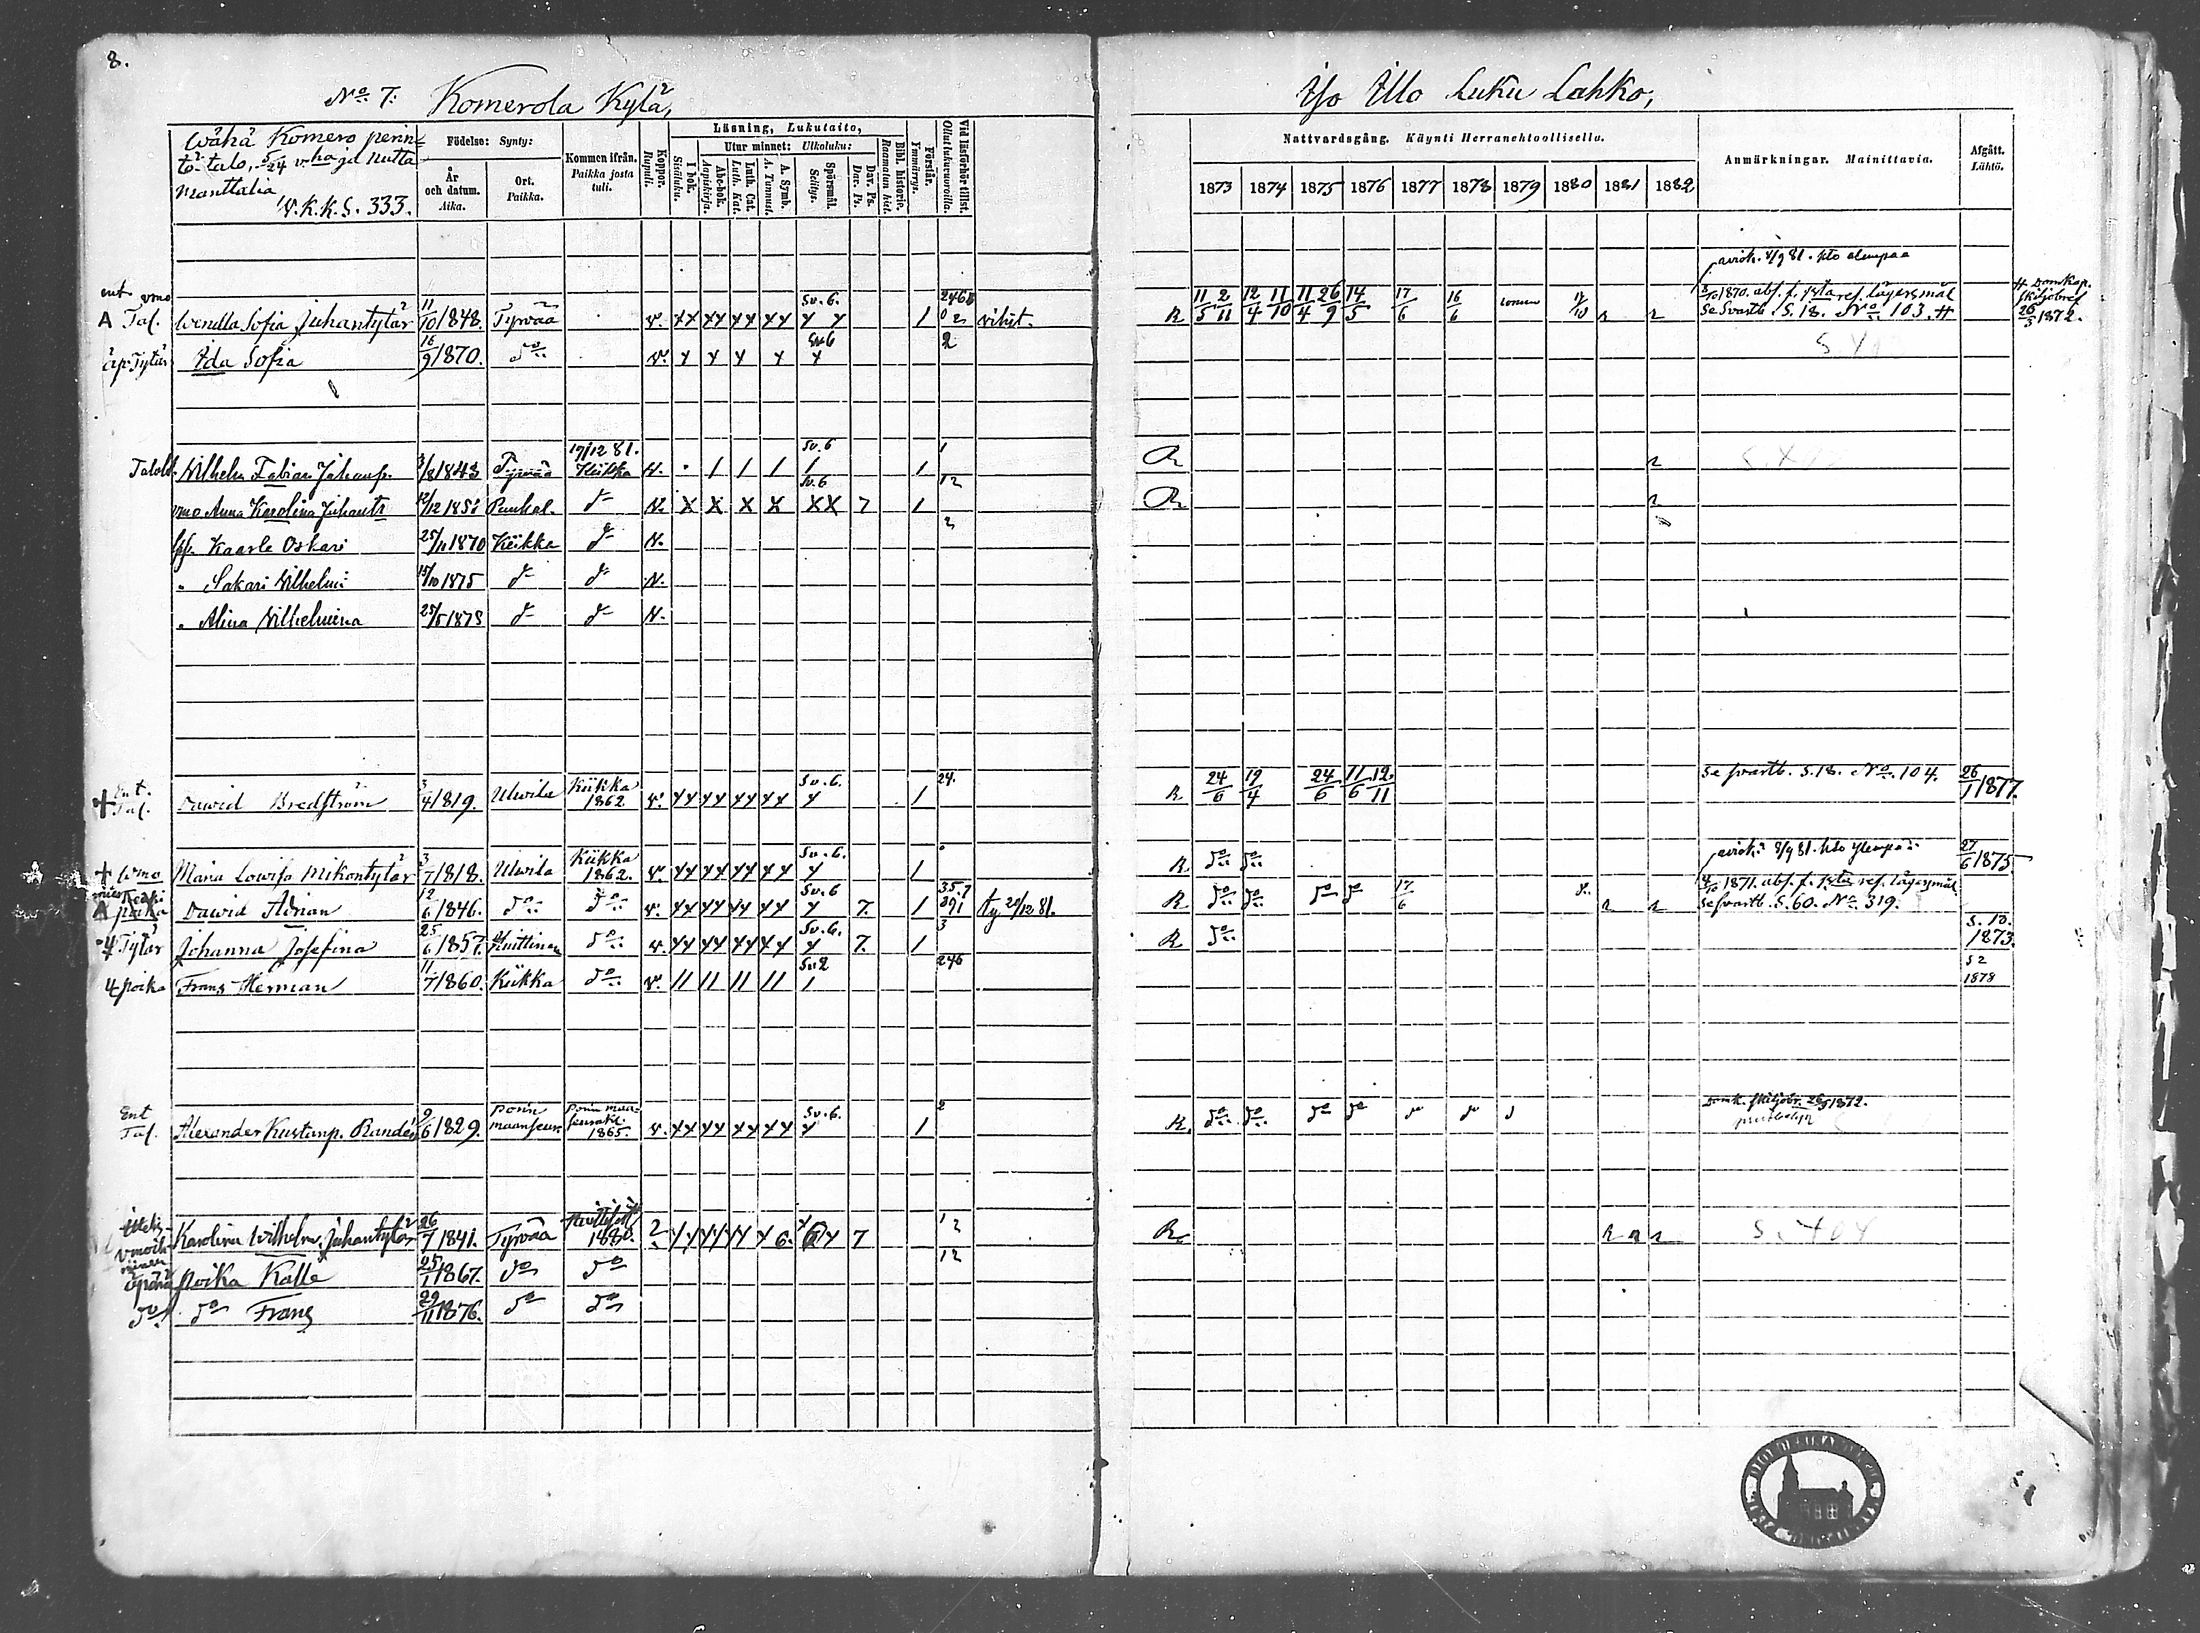 8.
No. 7: Komerola Kylä,
Iso Illo Luku Lahko;
Wähä Komero perin-
tö talo, 5/24 v:ha ja nutta
manttalia
W.K.K.S. 333.
Födelse: Synty:
År och datum. Aika.
Ort. Paikka.
Kommen ifrån. Paikka josta tuli.
Koppor. Rupuli.
Läsning, Lukutaito,
I bok. Sisäluku.
Utur minnet: Ulkoluku:
Abc-bok. Aapiskirja.
Luth. Cat. Luth. Kat.
A. Symb. A. Tunnust.
Spörsmål. Selitys.
Dav. Ps. Dav. Ps.
Bibl. historie. Raamatun hist.
Förstår. Ymmärrys.
Vid läsförhör tillst. Ollut lukuvuorolla.
Nattvardsgång. Käynti Herranehtoollisella.
1873 1874 1875 1876 1877 1878 1879 1880 1881 1882
Anmärkningar. Mainittavia.
Afgått. Lähtö.
aviok. 8/9 81. kto alempaa
ent. vmo
A Tal. Wendla Sofia Juhantytär 11/10 1848. Tyrvää v. yy yy yy yy Sv. 6. y y 1 vihit. R 11/5 2/11 12/4 11/10 11/4 26/9 14/5 17/6 16/6 r r 1870. abs. f. 1sta ref. lägersmål
Se Svartb. S. 18. No. 103. #
# Domkap. skiljobref 26/3 1872.
äp. Tytär Ida Sofia 16/9 1870. do v. y y y y Sv 6 y 2
Taloll. Wilhelm Fabian Juhanp. 3/8 1843 Tyrvää 19/12 81. Kiikka N. 1 1 1 Sv. 6 1 1 R r
vmo Anna Karolina Juhantr Punkal. do N. X X X X Sv. 6 XX 7 1 12 R r
pk. Kaarle Oskari 25/11 1870 Kiikka do N. 2
" Sakari Vilhelmi 15/10 1875 do do N.
" Alina Vilhelmiina 25/5 1878 do do N.
+ Ent. Tal. Dawid Bredström 3/4 1819. Ulwila Kiikka 1862 v. yy yy yy yy Sv. 6. y 1 24. R 24/6 19/4 24/6 11/6 12/11 Se svartb. S. 18. No. 104. 26/1 1877.
+ Wmo Maria Lowisa Mikontytär 3/7 1818. Ulwila Kiikka 1862. v. yy yy yy yy Sv. 6. y 1 R do do 27/6 1875
aviok. 8/9 81. kto ylempää
A poika Dawid Adrian 12/6 1846. do do v. yy yy yy yy Sv. 6 y 7. 1 R do do do do 17/6 r r 1871. abs. f. 1sta ref. lägersmål
Se svartb. S. 60. No. 319.
Tytär Johanna Josefina 25/6 1857. Huittinen do v. yy yy yy yy Sv. 6. y 7. 1 3 R do S. 10. 1873.
4 poika Frans Herman 11/7 1860. Kiikka do v. 11 11 11 11 Sv 2 1 246 S 2 1878
Ent Tal. Alexander Kustanp. Randén 9/6 1829. Porin maaseur. Porin maaseurak. 1865. v. yy yy yy yy Sv. 6. y 1 2 R. do do do do do do Domk. skiljobr. 26/3 1872.
Itells. Karolina Wilhelm. Juhantytär 26/7 1841. Tyrvää 1880. 7 12 R r r r
äpärä poika Kalle 25/1 1867. do do 12
do do Frans 29/11 1876. do do